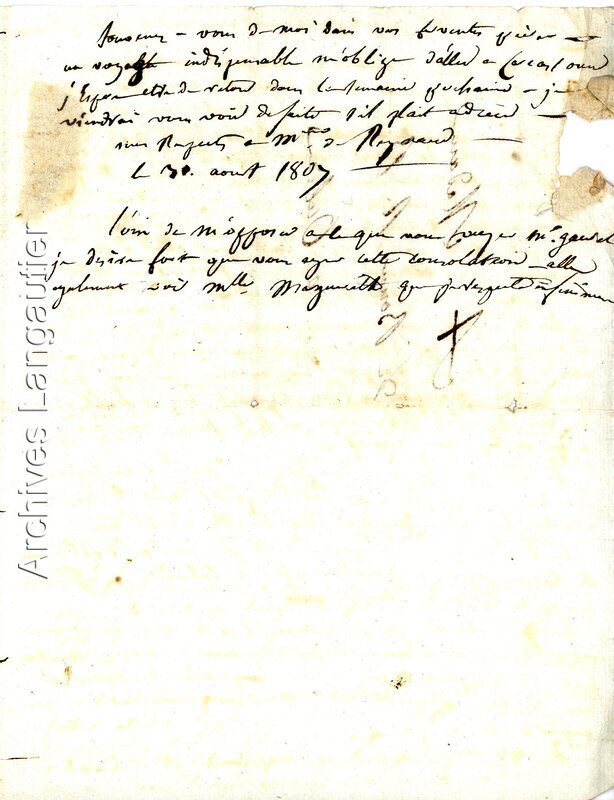 Souvenez-vous de moi dans vos ferventes prières
un voyage indispensable m'oblige d'aller a Carcassonne
j'Espere etre de retour dans la semaine prochaine - je
viendrai vous voir de suite s'il plait a dieu -
mes Respects a Mme de
le 30. aout 1807
loin de m'opposer a ce que vous voyez Mr.
je désire fort que vous ayez cette consolation allez
egalement voir Mlle Marguerite que je respecte infiniment
Archives Langautier